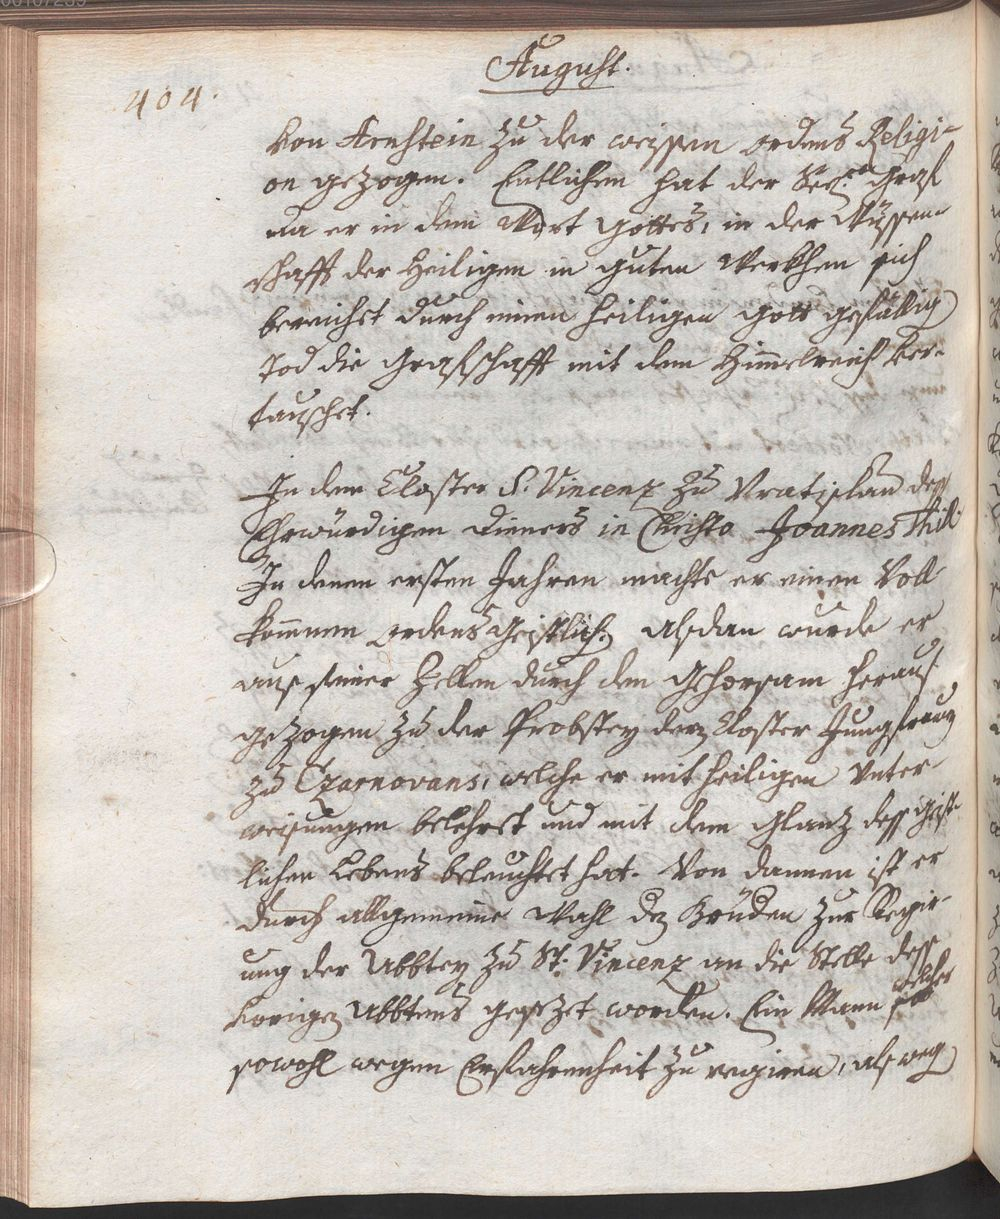 August.
404.
von Arnstein zu der weissen ordens Religi-
on gezogen. Entlichen hat der Seel: graf
da er in dem Wort Gottes, in der Wyssen-
schafft der Heiligen in guten Werkhen sich
bereichet durch einen heiligen Gott gefällig
tod die Grafschafft mit dem Himmelreich ver-
tauschet.
In dem Closter S. Vincenz zu Vratislau dess
Ehrwürdigen Dieners in Christo Joannes Thil.
In denen ersten Jahren machte er einen Voll-
kommen ordens Geistlich. Alsdan wurde er
aus seiner Zellen durch den Gehorsam heraus
gezogen zu der Probstey derz Closter Jungfrauz
zu Czarnovans, welche er mit heiligen Unter-
weisungen belehret und mit dem Glantz dess geist-
lichen Lebens beleuchtet hat. Von dannen ist er
durch allgemeine Wahl dez Brüden zur Regir-
ung der Abbtey zu St. Vincenz an die Stelle dess
vorigez Abbtens gesezet worden. Ein Mann welcher
sowohl wegen Erfahrenheit zu regiren, als weg